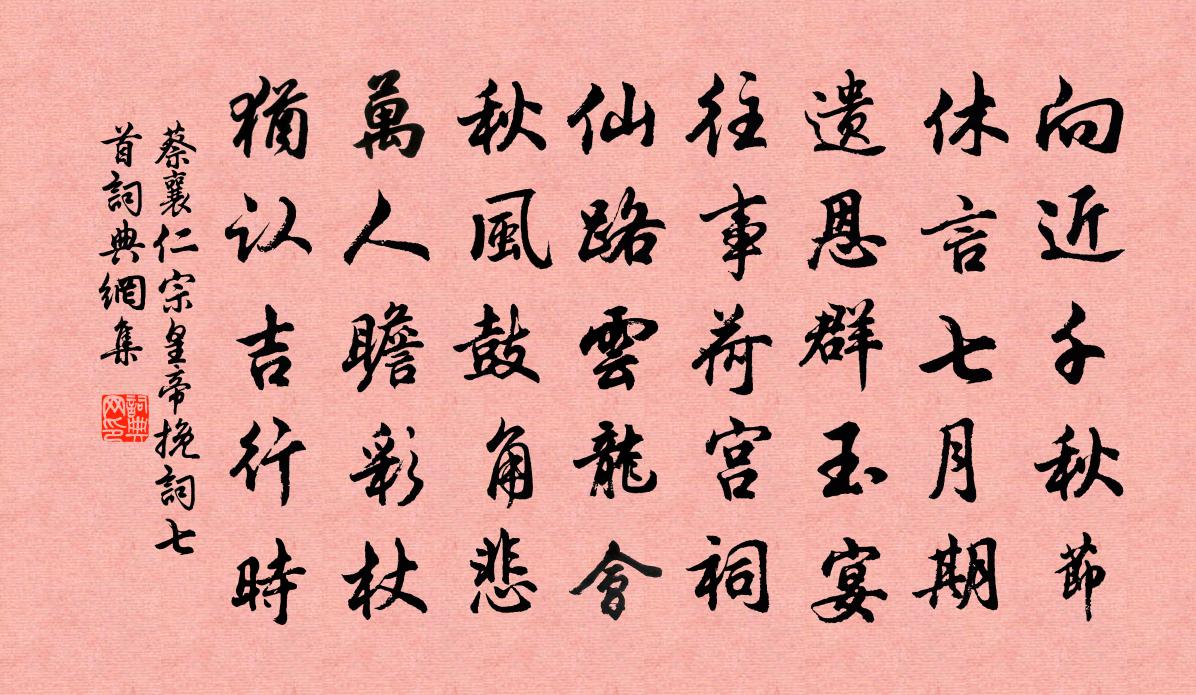 向近千秋節
休言七月期
遗恩群玉宴
往事荷宫祠
仙路雲龍會
秋風鼓角悲
萬人瞻彩杖
猶认吉行時
蔡襄仁宗皇帝挽詞七
首詞典網集
詞典
网印